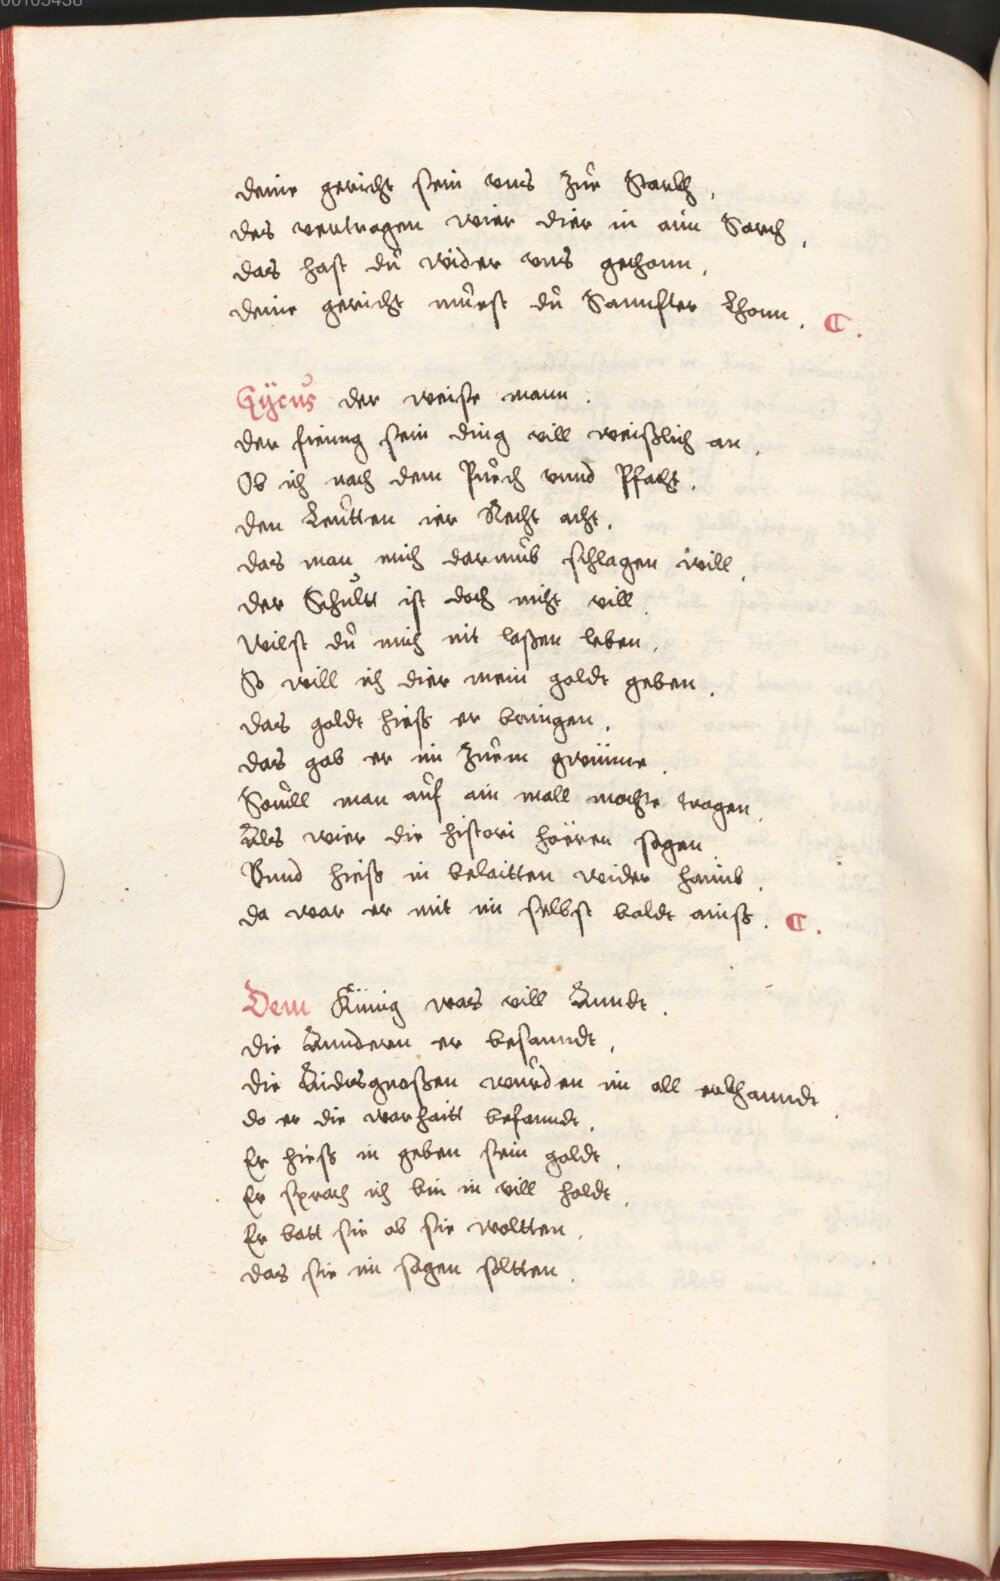 00103438
deine gericht sein vns zůe Starckh,
des vertragen wier dier in aim Sarch,
das hast dů wider vns gethonn,
deine gericht můest dů Sannfter Thonn. C.
Gÿcus der weise mann.
der fieng sein ding vill weißlich an,
Ob ich nach dem Půech vnnd Pfacht,
den Leůtten ier Recht acht,
das man mich darumb schlagen will,
der Schuldt ist doch nicht vill.
Wilst dů mich nit laßen leben,
So will ich dier mein goldt geben,
das goldt hieß er bringen,
das gab er im Zůem gwinne,
Souill man aůf ain mall mochte tragen,
Als wier die histori höeren sagen
Vnnd hieß in belaitten wider haimb.
da war er mit im selbst baldt ainß. C.
Dem Künig was vill Anndt.
die Annderen er besanndt,
die Aidtsgnoßen wůrden im all erkhanndt,
do er die warhaitt befanndt,
Er hieß in geben sein goldt,
Er sprach ich bin in vill holdt,
Er batt sie ob sie woltten,
das sie im sagen soltten.